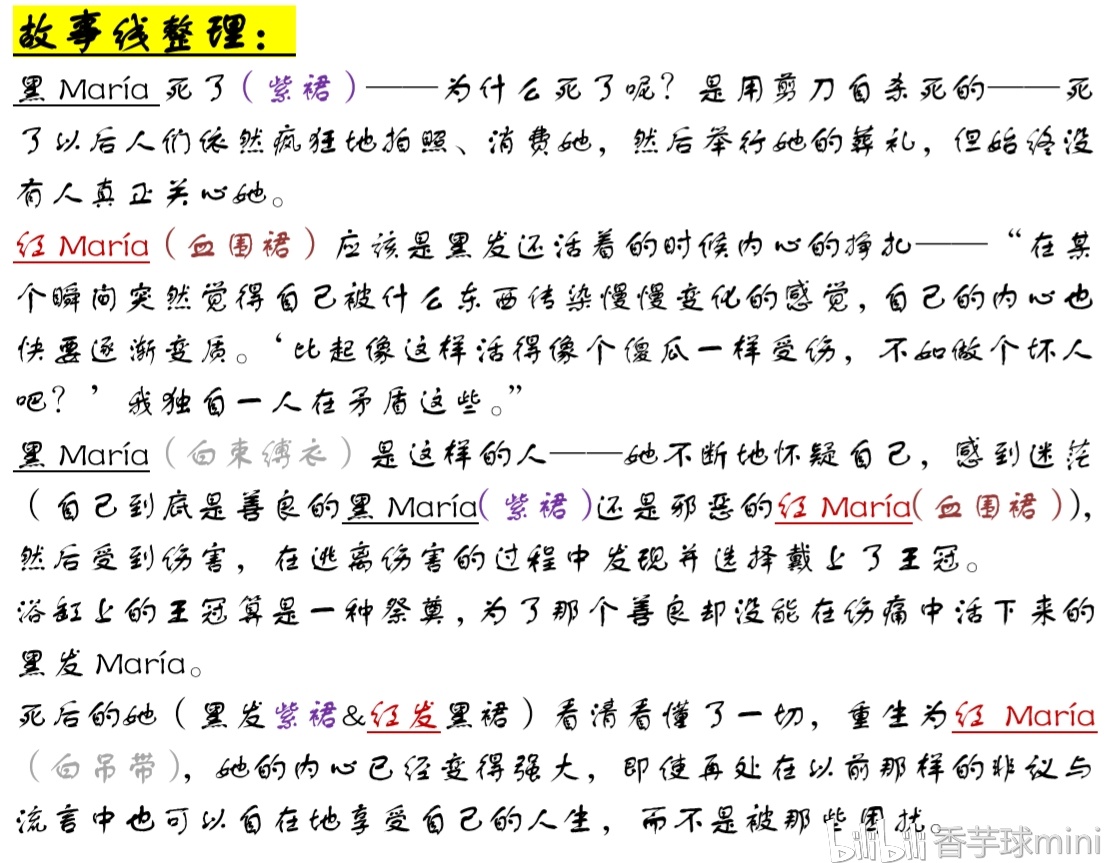 故事线整理：
黑 María 死了（紫裙）——为什么死了呢？是用剪刀自杀死的——死
了以后人们依然疯狂地拍照、消费她，然后举行她的葬礼，但始终没
有人真正关心她。
红 María（血围裙）应该是黑发还活着的时候内心的挣扎——“在某
个瞬间突然觉得自己被什么东西传染慢慢变化的感觉，自己的内心也
快要逐渐变质。‘比起像这样活得像个傻瓜一样受伤，不如做个坏人
吧？’我独自一人在矛盾这些。”
黑 María（白束缚衣）是这样的人——她不断地怀疑自己，感到迷茫
（自己到底是善良的黑 María(紫裙)还是邪恶的红 María(血围裙))，
然后受到伤害，在逃离伤害的过程中发现并选择戴上了王冠。
浴缸上的王冠算是一种祭奠，为了那个善良却没能在伤痛中活下来的
黑发 María。
死后的她（黑发紫裙&红发黑裙）看清看懂了一切，重生为红 María
（白吊带），她的内心已经变得强大，即使再处在以前那样的非议与
流言中也可以自在地享受自己的人生，而不是被那些困扰。
bilibili 香芋球mini